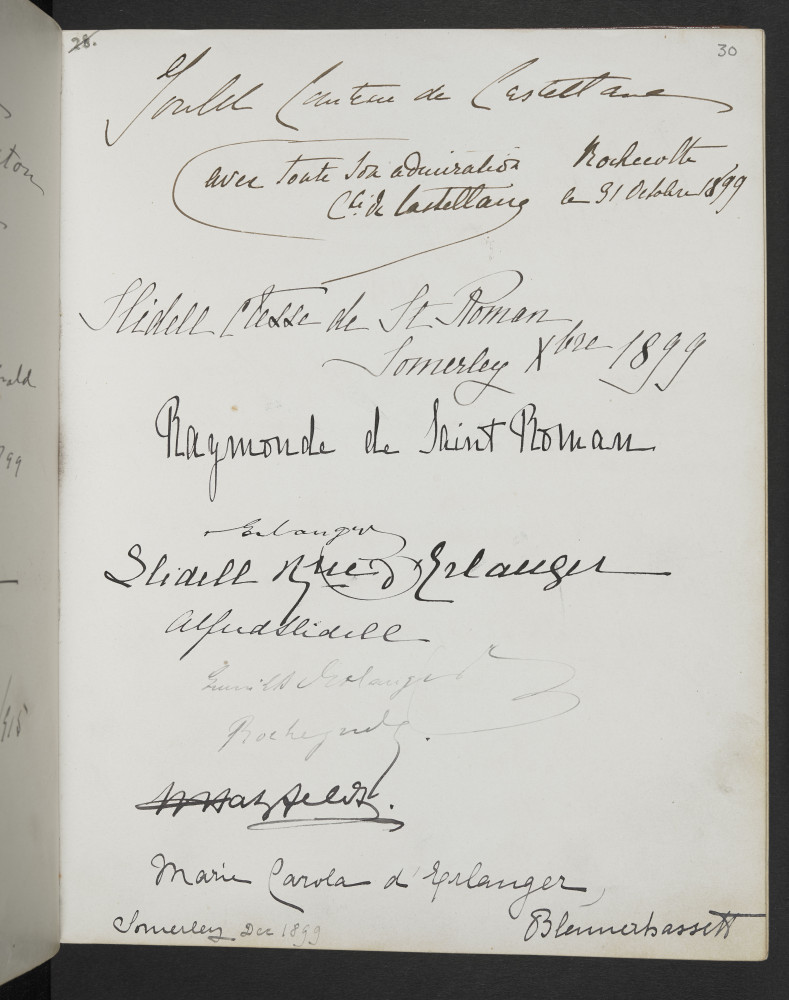 28.
30
Gould Comtesse de Castellane
avec toute son admiration
Cte de Castellane
Rochecotte
le 31 Octobre 1899
Slidell Ctesse de St Roman
Somerley Xbre 1899
Raymonde de Saint Roman
Erlanger
Slidell d'Erlanger
Alfred Slidell
d'Erlanger
Hatzfeldt.
Marie Carola d'Erlanger,
Somerley Dec 1899
Blennerhassett